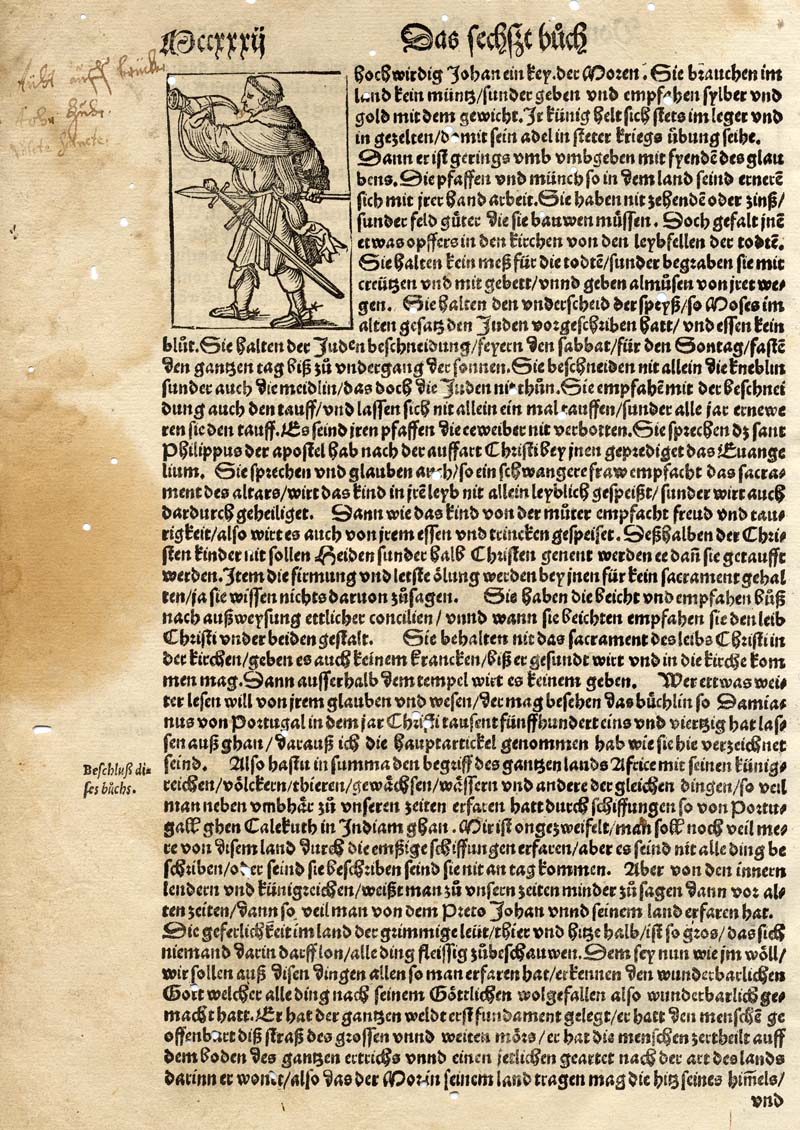 Mccxxxij Das sechszt bůch
hochwirdig Johan ein key. der Moren. Sie brauchen im
land kein müntz/sunder geben vnd empfahen sylber vnd
gold mit dem gewicht. Jr künig helt sich stets im leger vnd
in gezelten/damit sein adel in steter kriegs übung seihe.
Dann er ist gerings vmb vmbgeben mit fyendē des glau
bens. Die pfaffen vnd münch so in dem land seind ernerē
sich mit jrer hand arbeit. Sie haben nit zehendē oder zinß/
sunder feld güter die sie bauwen müssen. Doch gefalt jnē
etwas opffers in den kirchen von den leybfellen der todtē.
Sie halten kein meß für die todtē/sunder begraben sie mit
creützen vnd mit gebett/vnnd geben almůsen von jret we-
gen. Sie halten den vnderscheid der speyß/so Moses im
alten gesatz den Juden vorgeschriben hatt/ vnd essen kein
blůt. Sie halten der Juden beschneidung/feyern den sabbat/für den Sontag/fastē
den gantzen tag biß zů vndergang der sonnen. Sie beschneiden nit allein die kneblin
sunder auch die meidlin/das doch die Juden nit thůn. Sie empfahē mit der beschnei
dung auch den tauff/vnd lassen sich nit allein ein mal tauffen/sunder alle jar ernewe
ren sie den tauff. Es seind jren pfaffen die eeweiber nit verbotten. Sie sprechen dz sant
Philippus der apostel hab nach der auffart Christi bey jnen geprediget das Euange
lium. Sie sprechen vnd glauben auch/so ein schwangere fraw empfacht das sacra-
ment des altars/wirt das kind in jrē leyb nit allein leyblich gespeißt/sunder wirt auch
dardurch geheiliget. Dann wie das kind von der můter empfacht freud vnd tau-
rigkeit/also wirt es auch von jrem essen vnd trincken gespeiset. Deßhalben der Chri-
sten kinder nit sollen Heiden sunder halb Christen genent werden ee dañ sie getaufft
werden. Item die firmung vnd letste ölung werden bey jnen für kein sacrament gehal
ten/ja sie wissen nichts daruon zůsagen. Sie haben die beicht vnd empfahen bůß
nach außweysung ettlicher concilien/ vnnd wann sie beichten empfahen sie den leib
Christi vnder beiden gestalt. Sie behalten nit das sacrament des leibs Christi in
der kirchen/geben es auch keinem krancken/biß er gesundt wirt vnd in die kirche kom
men mag. Dann ausserhalb dem tempel wirt es keinem geben. Wer ettwas wei-
ter lesen will von jrem glauben vnd wesen/der mag besehen das büchlin so Damia-
nus von Portugal in dem jar Christi tausent fünffhundert eins vnd viertzig hat las-
sen auß ghan/darauß ich die hauptartickel genommen hab wie sie hie verzeichnet
seind. Also hastu in summa den begriff des gantzen lands Africe mit seinen künig-
reichen/völckern/thieren/gewächsen/wässern vnd andere der gleichen dingen/so veil
man neben vmbhär zů vnseren zeiten erfaren hatt durch schiffungen so von Portu-
gall ghen Calekuth in Indiam ghan. Mir ist ongezweifelt/man soll noch veil me-
re von disem land durch die emßige schiffungen erfaren/aber es seind nit alle ding be
schriben/oder seind sie beschriben seind sie nit an tag kommen. Aber von den innern
lendern vnd künigreichen/weißt man zů vnsern zeiten minder zů sagen dann vor al-
ten zeiten/dann so veil man von dem Preto Johan vnnd seinem land erfaren hat.
Die geferlichkeit im land der grimmige leüt/thier vnd hitze halb/ist so gros/das sich
niemand darin darff lon/alle ding fleissig zůbeschauwen. Dem sey nun wie jm wöll/
wir sollen auß disen dingen allen so man erfaren hat/erkennen den wunderbarlichen
Gott welcher alle ding nach seinem Göttlichen wolgefallen also wunderbarlich ge-
macht hatt. Er hat der gantzen weldt erst fundament gelegt/er hatt den menschē ge
offenbart diß straß des grossen vnnd weiten mörs/er hat die menschen zertheilt auff
dem boden des gantzen ertrichs vnnd einen jetlichen geartet nach der art des lands
darinn er wont/also das der Mor in seinem land tragen mag die hitz seines him̄els/
vnd
Beschluß di-
ses bůchs.